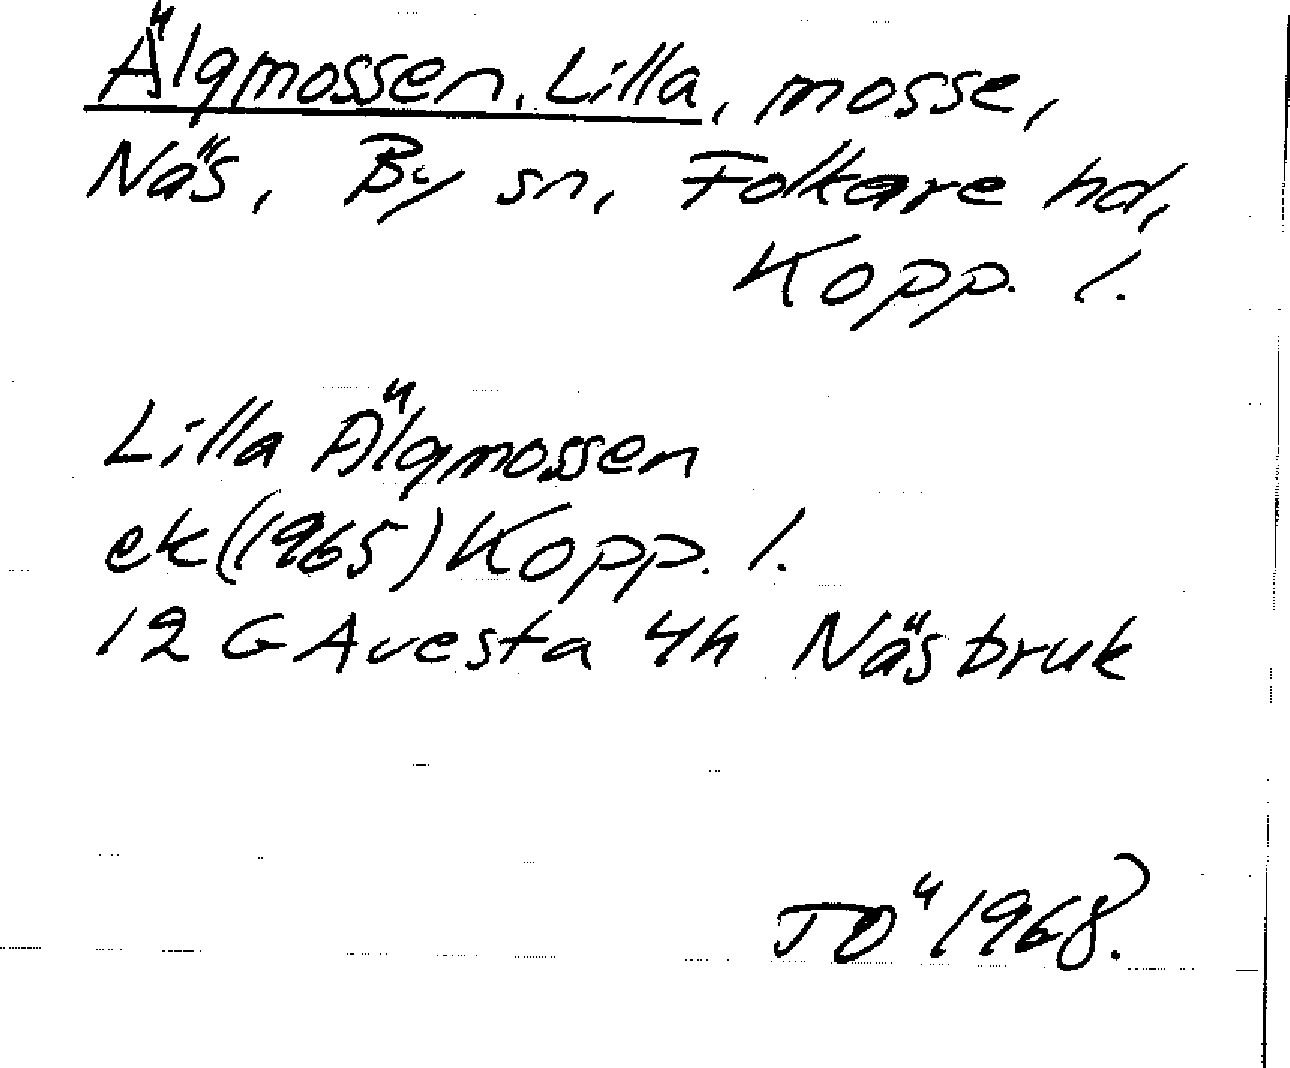 Älgmossen, Lilla, mosse,
Näs, By sn, Folkare hd,
Kopp. l.
Lilla Älgmossen
ek (1965) Kopp. l.
12 G Avesta 4h Näs bruk
TÖ 1968.